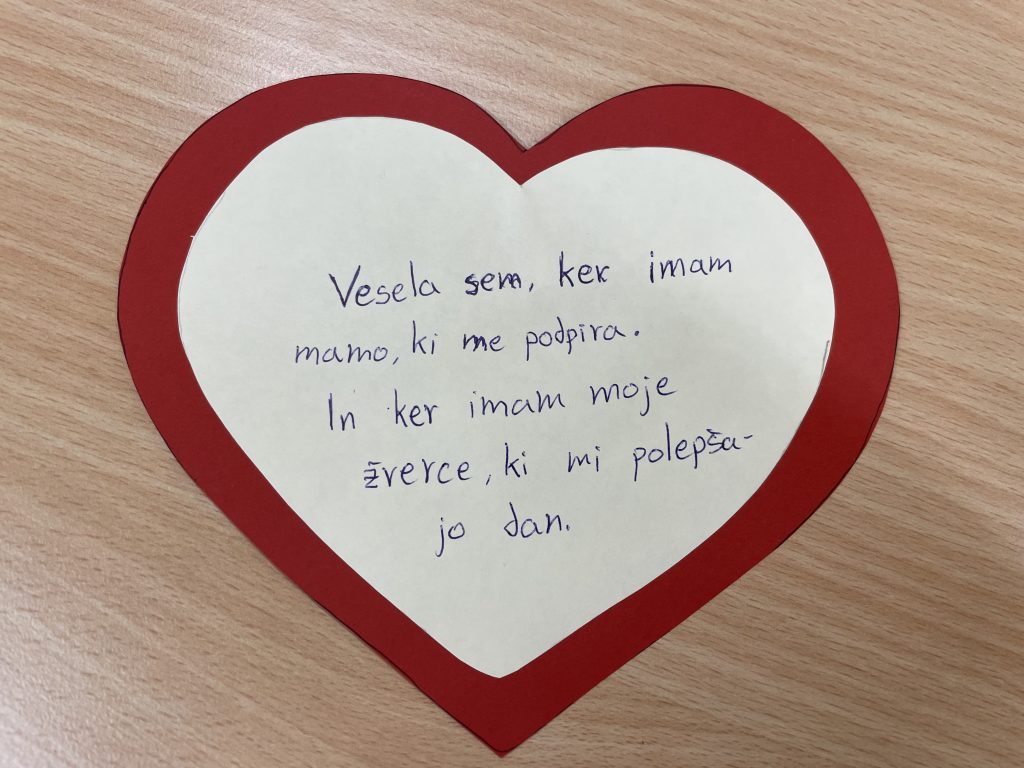 Vesela sem, ker imam
mamo, ki me podpira.
In ker imam moje
žverce, ki mi polepša-
jo dan.